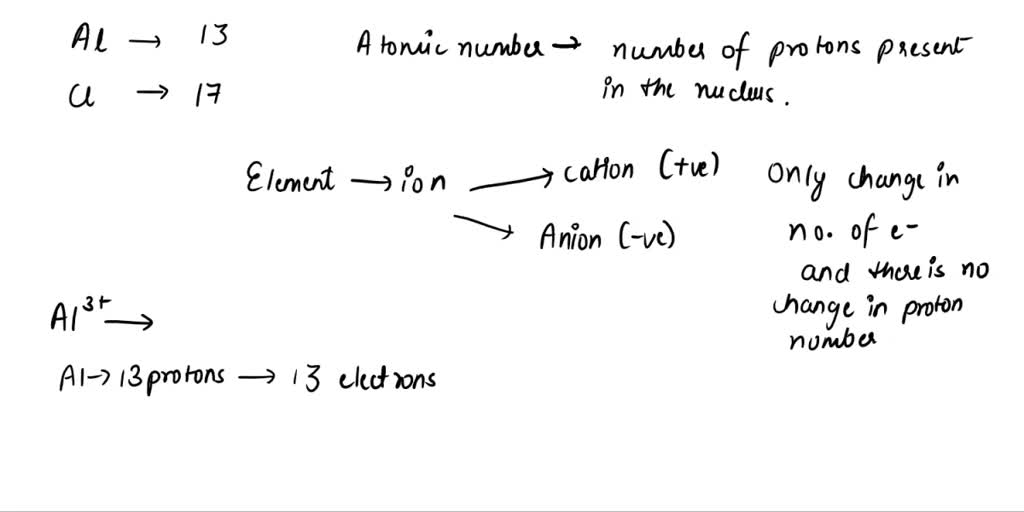 Al → 13
Cl → 17
Atomic number → number of protons present
in the nucleus.
Element → ion → cation (+ve)
→ Anion (-ve)
Only change in
no. of e-
and there is no
change in proton
number
Al³⁺ →
Al → 13 protons → 13 electrons